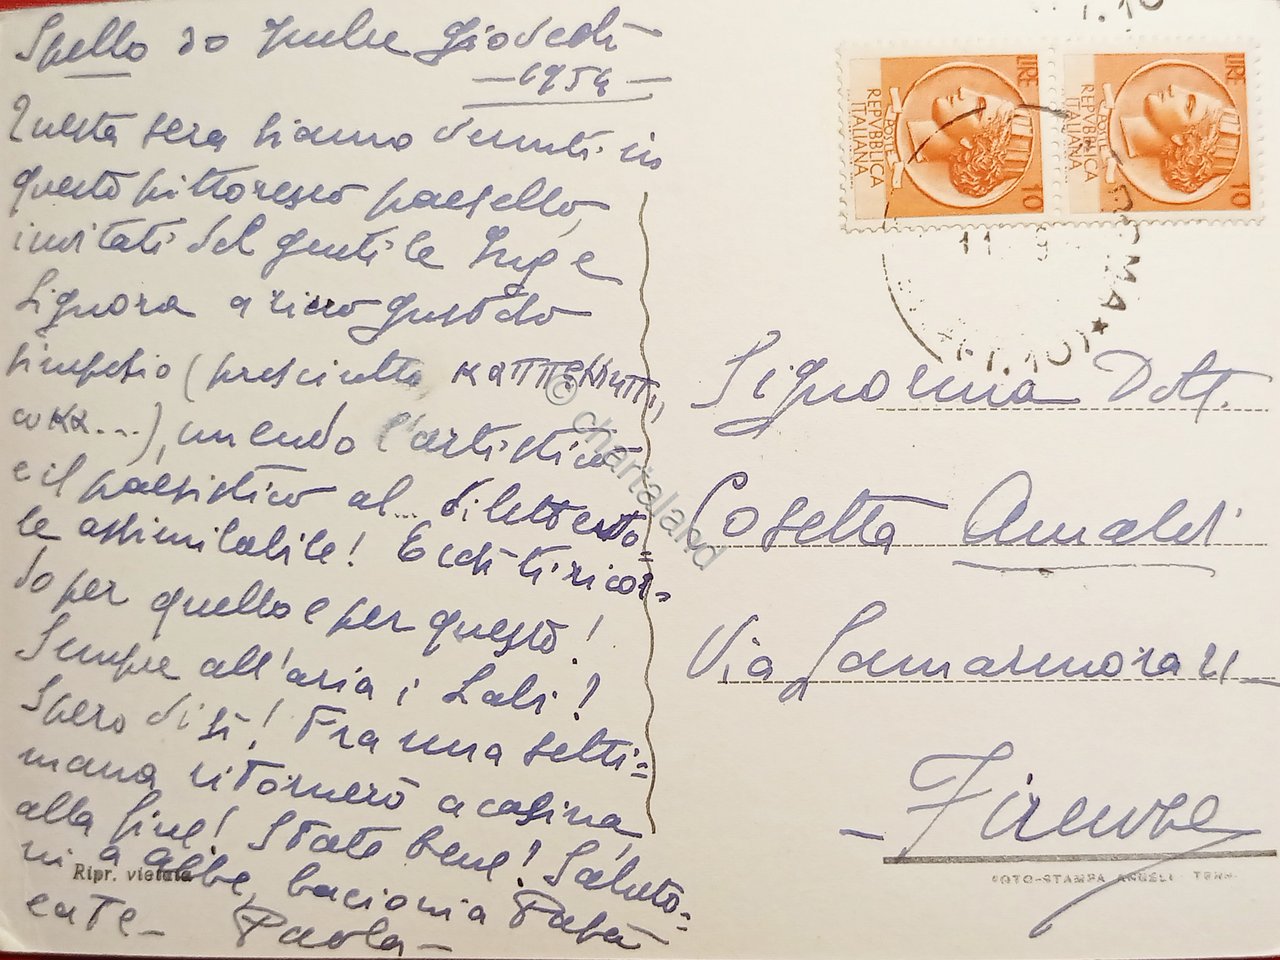 Spello 30 Giovedì
— 1954 —
Questa sera siamo venuti in
questo pittoresco paesello,
invitati dal gentile Ing e
Signora a ricco gustoso
simposio (prosciutto,
...), unendo l'artistico
e il paesistico al... diletto
le assimilabile! E così ti ricor=
do per quello e per questo!
Sempre all'aria i Lali?
Spero di sì! Fra una setti=
mana ritornerò a casina,
alla fine! State bene! Saluto=
ni a Bebe, bacioni a Babà
e a Te — Paola —
Ripr. vietata
LIRE 10
REPVBBLICA
ITALIANA
POSTE
LIRE 10
REPVBBLICA
ITALIANA
POSTE
ROMA
11
Signorina Dott.
Cosetta Amaldi
Via Lamarmora 21
— Firenze
FOTO-STAMPA ANGELI TERNI
© chartaland